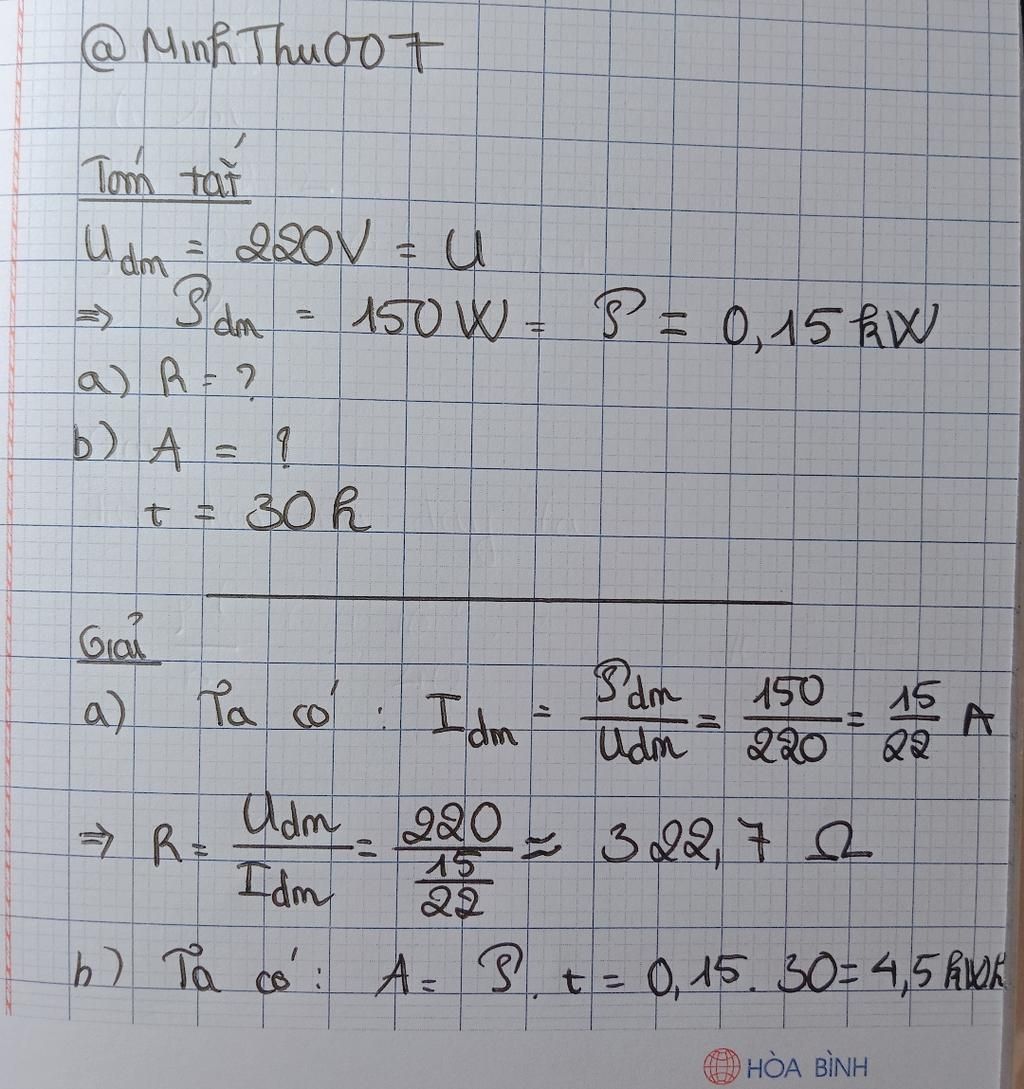 @MinhThu007
Tóm tắt
Udm = 220V = U
=> Pdm = 150W = P = 0,15 kW
a) R = ?
b) A = ?
t = 30h
Giải
a) Ta có : Idm = Pdm/Udm = 150/220 = 15/22 A
=> R = Udm/Idm = 220/(15/22) ≈ 322,7 Ω
b) Ta có : A = P. t = 0,15. 30 = 4,5 kWh
HÒA BÌNH